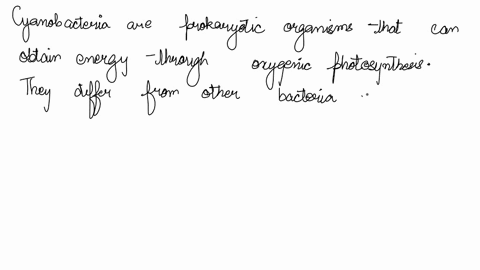 Cyanobacteria are prokaryotic organisms that can
obtain energy through oxygenic photosynthesis.
They differ from other bacteria